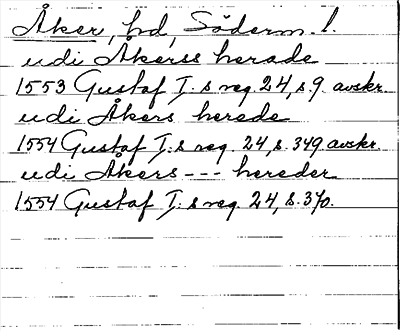 Åker, hd, Söderm. l.
udi Åkerss herade
1553 Gustaf I:s reg. 24, s. 9. avskr.
udi Åkers herede
1554 Gustaf I:s reg. 24, s. 349 avskr.
udi Åkers --- hereder
1554 Gustaf I:s reg. 24, s. 370.